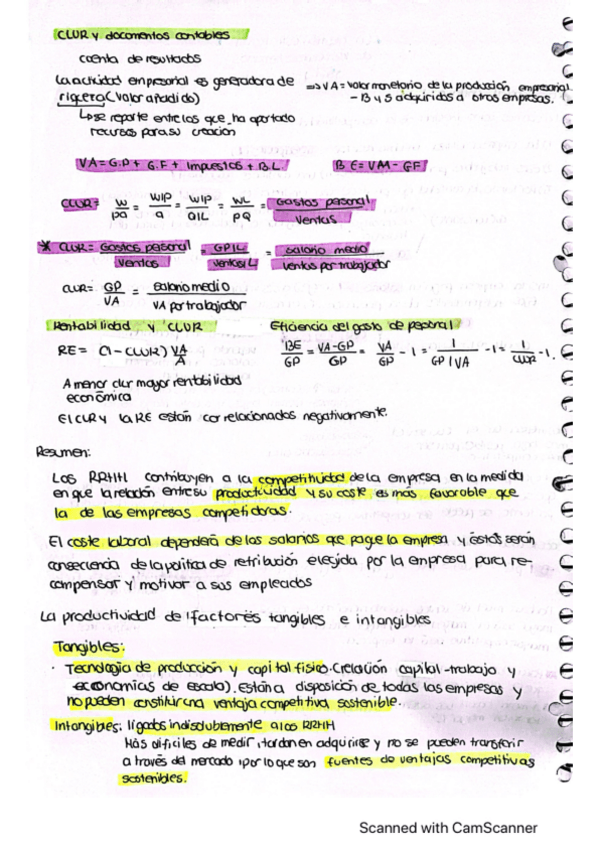 CLUR y documentos contables
cuenta de resultados
La actividad empresarial es generadora de
riqueza (valor añadido)
⇒ VA = valor monetario de la producción empresarial
- B y S adquiridos a otras empresas.
↳ se reparte entre los que ha aportado
recursos para su creación
VA = G.P + G.F + Impuestos + B.L
BE = VAA - GF
CLUR = W/pa = W/P/a = W/P/Q/L = WL/PQ = Gastos personal/Ventas
* CLUR = Gastos personal/Ventas = GP/L/Ventas/L = salario medio/ventas por trabajador
CLUR = GP/VA = salario medio/VA por trabajador
Rentabilidad y CLUR
Eficiencia del gasto de personal
RE = (1 - CLUR) VA/A
BE/GP = VA-GP/GP = VA/GP - 1 = 1/GP/VA - 1 = 1/CLUR - 1.
A menor clur mayor rentabilidad
económica
El CLUR y la RE están correlacionados negativamente.
Resumen:
Los RRHH contribuyen a la competitividad de la empresa en la medida
en que la relación entre su productividad y su coste es más favorable que
la de las empresas competidoras.
El coste laboral dependerá de los salarios que pague la empresa y éstos serán
consecuencia de la política de retribución elegida por la empresa para re-
compensar y motivar a sus empleados
La productividad de factores tangibles e intangibles
Tangibles:
· Tecnología de producción y capital físico. (relación capital-trabajo y
economías de escala). Están a disposición de todas las empresas y
no pueden constituir una ventaja competitiva sostenible.
Intangibles: ligados indisolublemente a los RRHH
Más difíciles de medir, tardan en adquirirse y no se pueden transferir
a través del mercado, por lo que son fuentes de ventajas competitivas
sostenibles.
Scanned with CamScanner